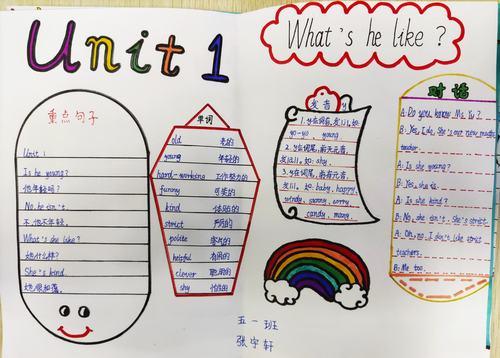 Unit 1
What's he like?
重点句子
Unit 1
Is he young?
他年轻吗?
No, he isn't.
不,他不年轻。
What's she like?
她什么样?
She's kind.
她很和蔼。
单词
old 老的
young 年轻的
hard-working 工作努力的
funny 可笑的
kind 体贴的
strict 严厉的
polite 客气的
helpful 有用的
clever 聪明的
shy 怕羞的
发音 y
1. y在词首,发[j],如
yo-yo, young
2. y在词尾,前无元音,
发[aɪ],如: shy.
3. y在词尾,前有元音,
发[i],如: baby, happy,
windy, sunny, sorry
candy, many.
对话
A: Do you know Mr Yu?
B: Yes, I do. She's our new music
teacher.
A: Is she young?
B: Yes, she is.
A: Is she kind?
B: No, she isn't. She's strict.
A: Oh, no. I don't like strict
teachers.
B: Me too.
五一班
张宇轩